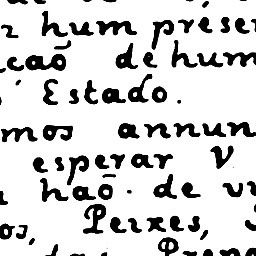 hum presen
cão de hum
Estado.
mos annun
esperar V
hão. de vi
os, Peixes,